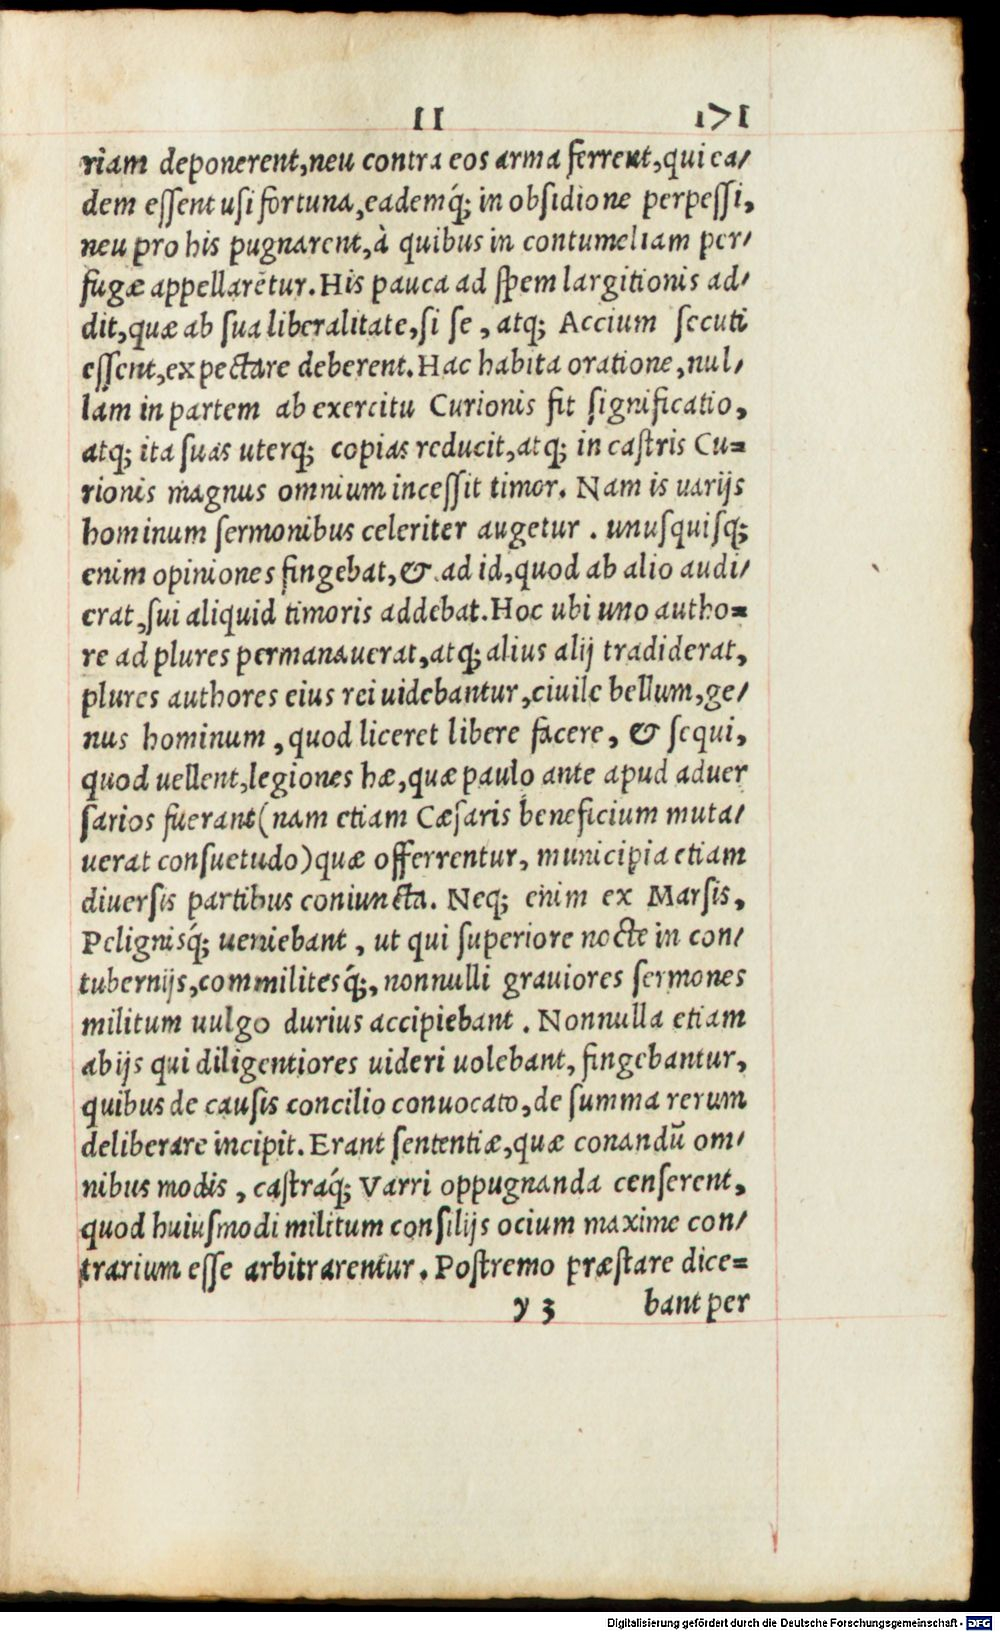 II 171
riam deponerent,neu contra eos arma ferrent,qui ea/
dem essent usi fortuna,eademq́; in obsidione perpessi,
neu pro his pugnarent,à quibus in contumeliam per/
fugæ appellarētur.His pauca ad spem largitionis ad/
dit,quæ ab sua liberalitate,si se , atq; Accium secuti
essent,expectare deberent.Hac habita oratione,nul/
lam in partem ab exercitu Curionis fit significatio,
atq; ita suas uterq; copias reducit,atq; in castris Cu=
rionis magnus omnium incessit timor. Nam is uarijs
hominum sermonibus celeriter augetur . unusquisq;
enim opiniones fingebat,& ad id,quod ab alio audi/
erat,sui aliquid timoris addebat.Hoc ubi uno autho=
re ad plures permanauerat,atq; alius alij tradiderat,
plures authores eius rei uidebantur,ciuile bellum,ge/
nus hominum ,quod liceret libere facere, & sequi,
quod uellent,legiones hæ,quæ paulo ante apud aduer
sarios fuerant(nam etiam Cæsaris beneficium muta/
uerat consuetudo)quæ offerrentur, municipia etiam
diuersis partibus coniuncta. Neq; enim ex Marsis,
Pelignisq́; ueniebant , ut qui superiore nocte in con/
tubernijs,commilitesq́;, nonnulli grauiores sermones
militum uulgo durius accipiebant . Nonnulla etiam
ab ijs qui diligentiores uideri uolebant, fingebantur,
quibus de causis concilio conuocato,de summa rerum
deliberare incipit.Erant sententiæ,quæ conandū om/
nibus modis , castraq́; Varri oppugnanda censerent,
quod huiusmodi militum consilijs ocium maxime con/
trarium esse arbitrarentur. Postremo præstare dice=
y 3 bant per
Digitalisierung gefördert durch die Deutsche Forschungsgemeinschaft - DFG